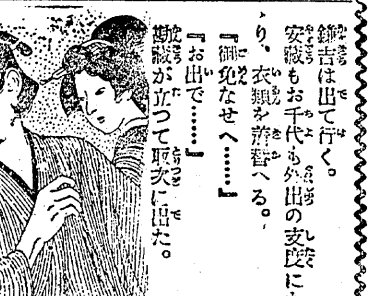 鎌吉は出て行く。
安藏もお千代も外出の支度に
ゝり、衣類を着替へる。
『御免なせへ……』
『お出で……』
勘藏が立つて取次に出た。